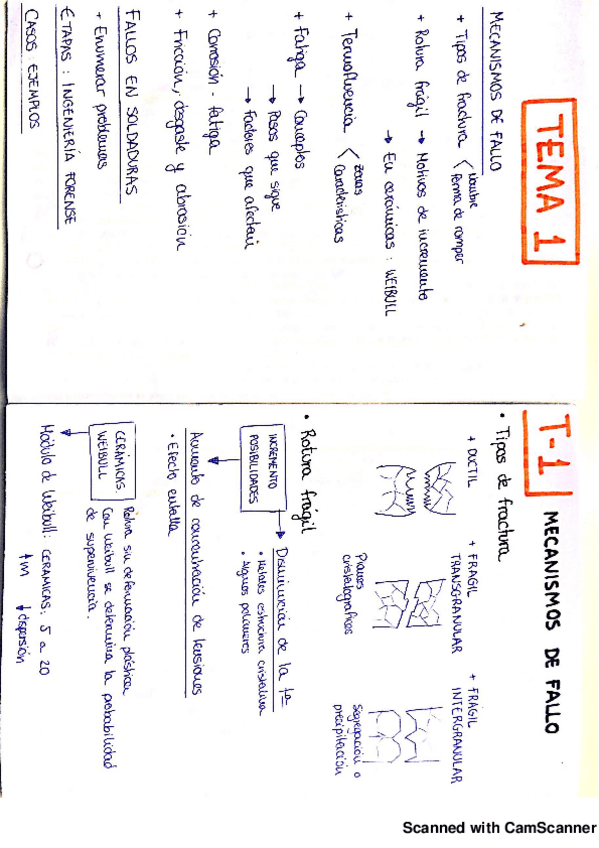 TEMA 1
MECANISMOS DE FALLO
+ Tipos de fractura < Nombre
Forma de romper
+ Rotura frágil → Motivos de incremento
→ En cerámicas : WEIBULL
+ Termofluencia < Zonas
Características
+ Fatiga → Conceptos
→ Pasos que sigue
→ Factores que afectan
+ Corrosión - fatiga
+ Fricción, desgaste y abrasión
FALLOS EN SOLDADURAS
+ Enumerar problemas
ETAPAS : INGENIERÍA FORENSE
CASOS EJEMPLOS
T-1 MECANISMOS DE FALLO
• Tipos de fractura
+ DÚCTIL
+ FRAGIL TRANSGRANULAR
+ FRÁGIL INTERGRANULAR
Planos cristalograficos
Segregación o precipitación
• Rotura frágil
INCREMENTO POSIBILIDADES
→ Disminución de la tª
• Metales estructura cristalina
• Algunos polímeros
Aumento de concentración de tensiones
• Efecto entalla
CERÁMICAS WEIBULL
Rotura sin deformación plástica
Con weibull se determina la probabilidad
de supervivencia.
Módulo de Weibull: CERÁMICAS: 5 a 20
↑m ↓dispersión
Scanned with CamScanner